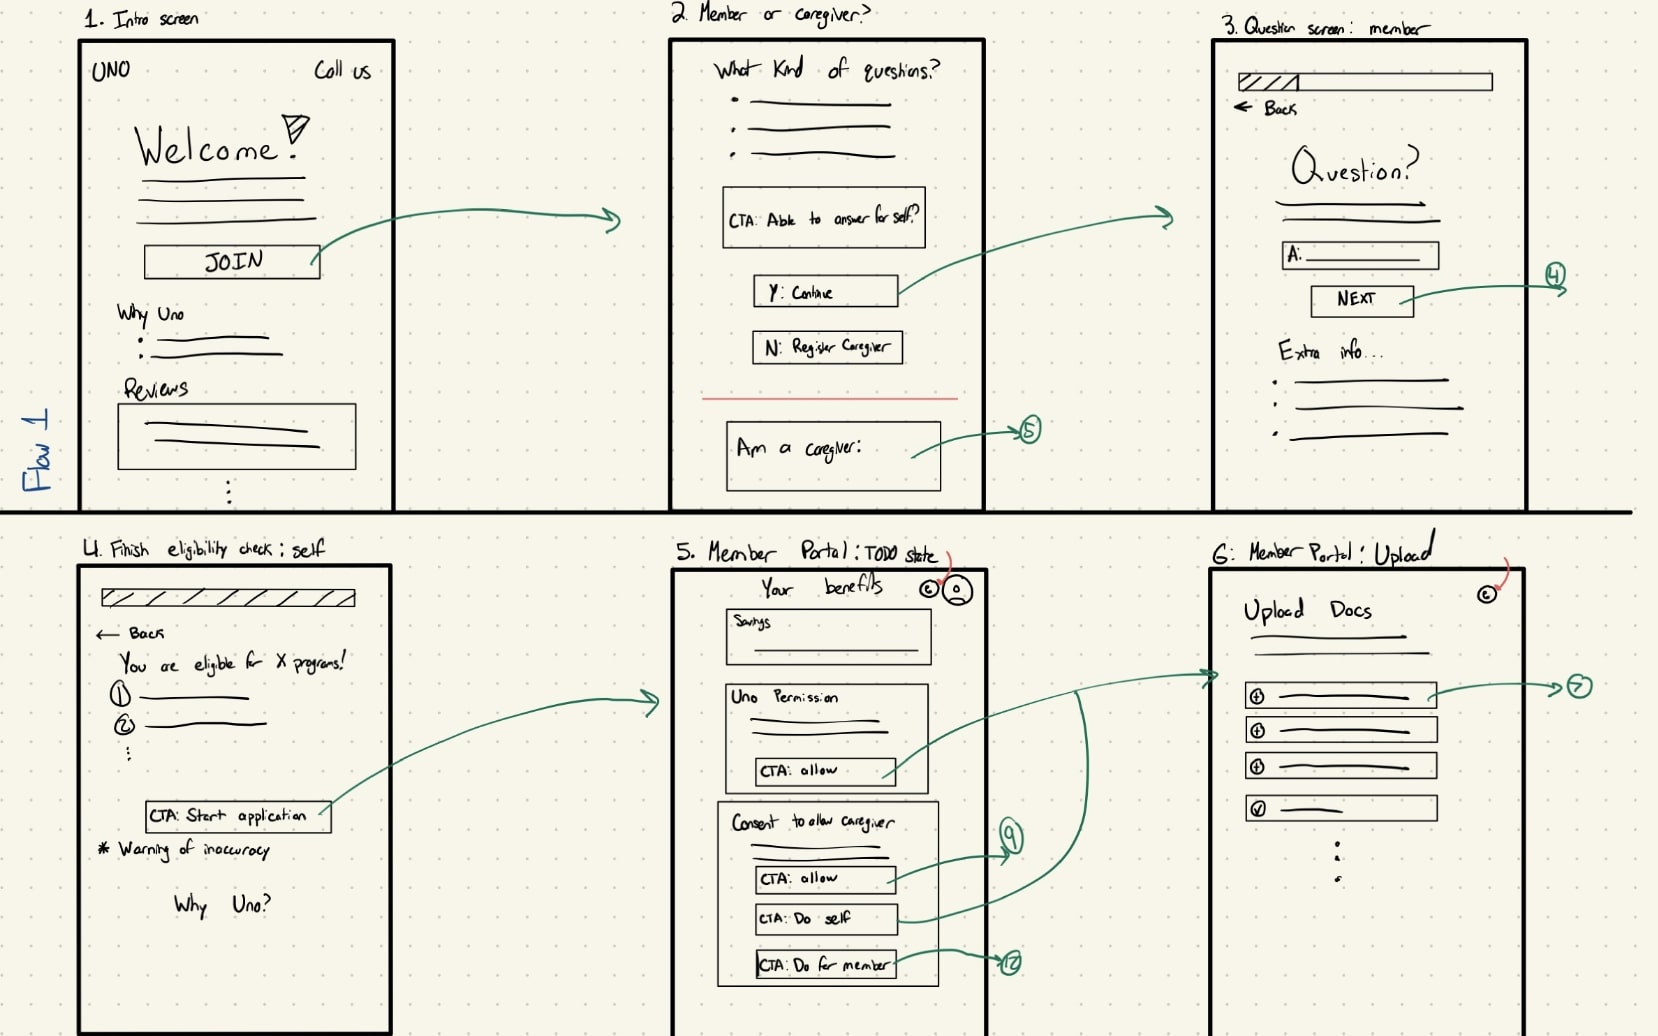 1. Intro screen
UNO
Call us
Welcome!
JOIN
Why Uno
Reviews
Flow 1
2. Member or caregiver?
What kind of questions?
CTA: Able to answer for self?
Y: Continue
N: Register Caregiver
Am a caregiver:
5
3. Question screen: member
← Back
Question?
A:
NEXT
4
Extra info...
4. Finish eligibility check: self
← Back
You are eligible for X programs!
1
2
CTA: Start application
* Warning of inaccuracy
Why Uno?
5. Member Portal: TODO state
Your benefits
Savings
Uno Permission
CTA: allow
Consent to allow caregiver
CTA: allow
9
CTA: Do self
CTA: Do for member
12
6: Member Portal: Upload
Upload Docs
7